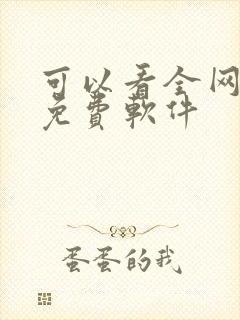 可以看全网
免費軟件
蛋蛋的我